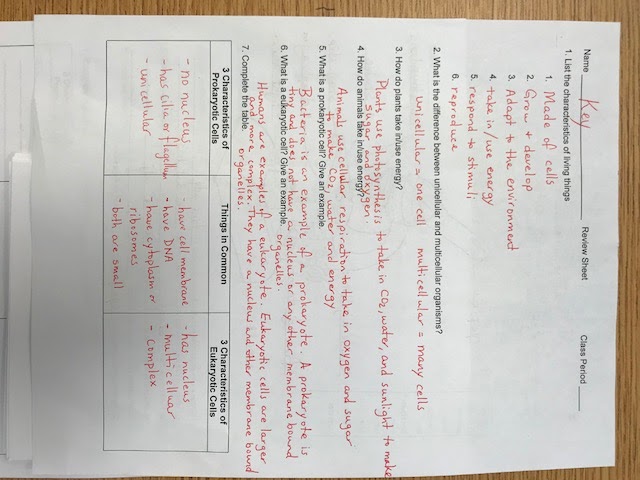 Name Key Review Sheet Class Period
1. List the characteristics of living things
1. Made of cells
2. Grow + develop
3. Adapt to the environment
4. take in/use energy
5. respond to stimuli
6. reproduce
2. What is the difference between unicellular and multicellular organisms?
unicellular = one cell multicellular = many cells
3. How do plants take in/use energy?
Plants use photosynthesis to take in CO2, water, and sunlight to make
sugar and oxygen.
4. How do animals take in/use energy?
Animals use cellular respiration to take in oxygen and sugar
to make CO2, water and energy
5. What is a prokaryotic cell? Give an example.
Bacteria is an example of a prokaryote. A prokaryote is
tiny and does not have a nucleus or any other membrane bound
organelles.
6. What is a eukaryotic cell? Give an example.
Humans are examples of a eukaryote. Eukaryotic cells are larger
and more complex. They have a nucleus and other membrane bound
organelles.
7. Complete the table.
3 Characteristics of Prokaryotic Cells
Things in Common
3 Characteristics of Eukaryotic Cells
- no nucleus
- has cilia or flagellum
- unicellular
- have cell membrane
- have DNA
- have cytoplasm or
ribosomes
- both are small
- has nucleus
- multicelluar
- complex